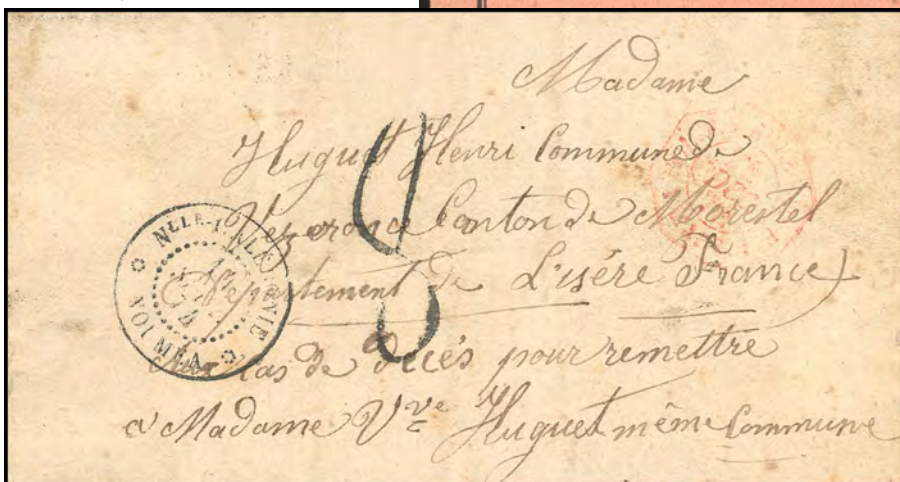 Madame
Huguet Henri Commune de
Vezeronce Canton de Morestel
Département de L'isére France
Cas de décés pour remettre
a Madame Vve Huguet même Commune
8
NLLE-CALEDONIE
NOUMEA